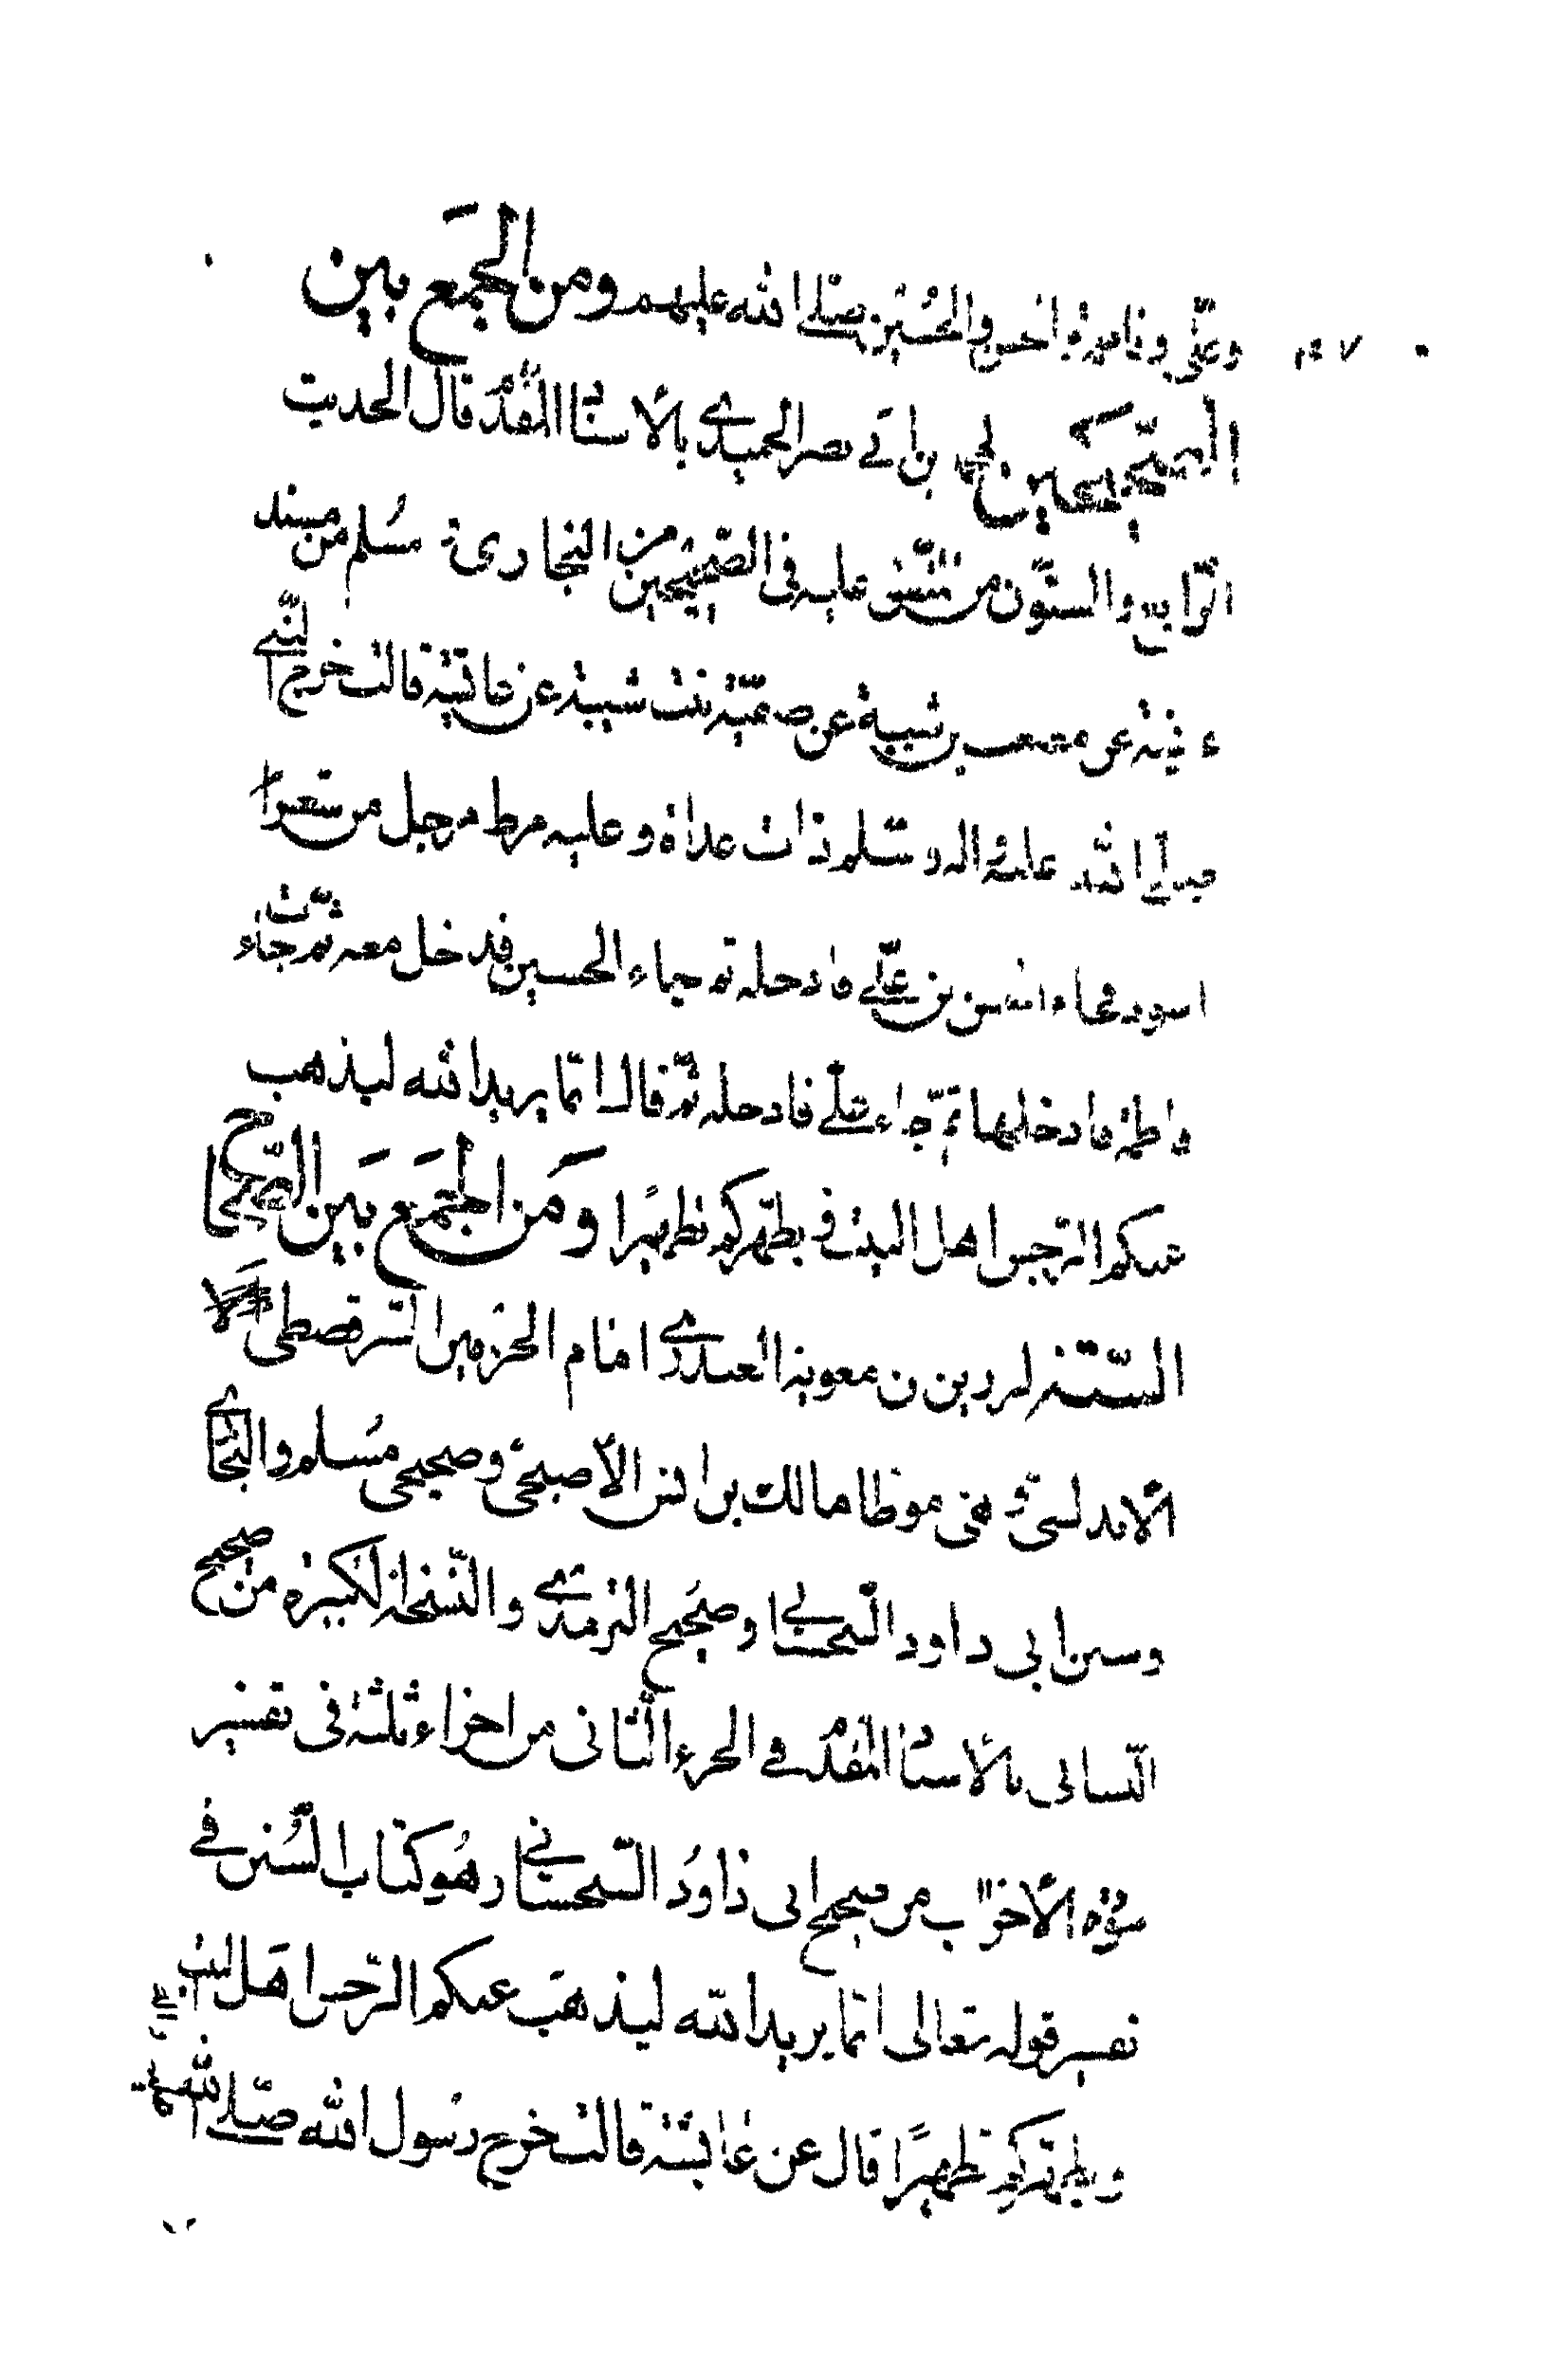 وعلّي وفاطمة والحسن والحسين صلى الله عليهم ومن الجَمع بين
الصّحيحَين لمحمد بن ابي نصر الحميدي بالاسناد المقدّم قال الحديث
الرّابع والستّون من المتّفق عليه في الصّحيحين من البخاري و مُسلم من مسند
عن مصعب بن شيبة عن صفيّة بنت شيبة عن عائشة قالت خرج النّبي
صلى الله عليه واله وسّلم ذات غداة وعليه مرط مرجل من شعر
اسود فجاء الحسن بن علّي فادخله ثم جاء الحسين فدخل معه ثم جاءت
فاطمة فادخلها ثمّ جاء علّي فادخله ثمّ قال انّما يريد الله ليذهب
عنكم الرّجس اهل البيت ويطهّركم تطهيرًا ومَن الجَمَع بَين الصّحاح
السّتة لرزين بن معوية العبدري امام الحرمين السّرقسطي
الاندلسي و هي موطا مالك بن انس الاصبحي وصحيحي مُسلم والبُخاري
وسنن ابي داود السّجستاني وصَحيح الترمذي والنّسخة الكبيرة من صحيح
النّسائي بالاسناد المقدّم في الجزء الثّاني من اجزاء ثلثة في تفسير
سورة الاحزاب من صحيح ابي داوُد السّجستاني وهُو كتاب السُّنن في
تفسير قوله تعالى انّما يريد الله ليذهَب عنكم الرّجس اهَل البيت
ويطهّركم تطهيرًا قال عن عائشة قالت خرج رسُول الله صّلى الله عليه